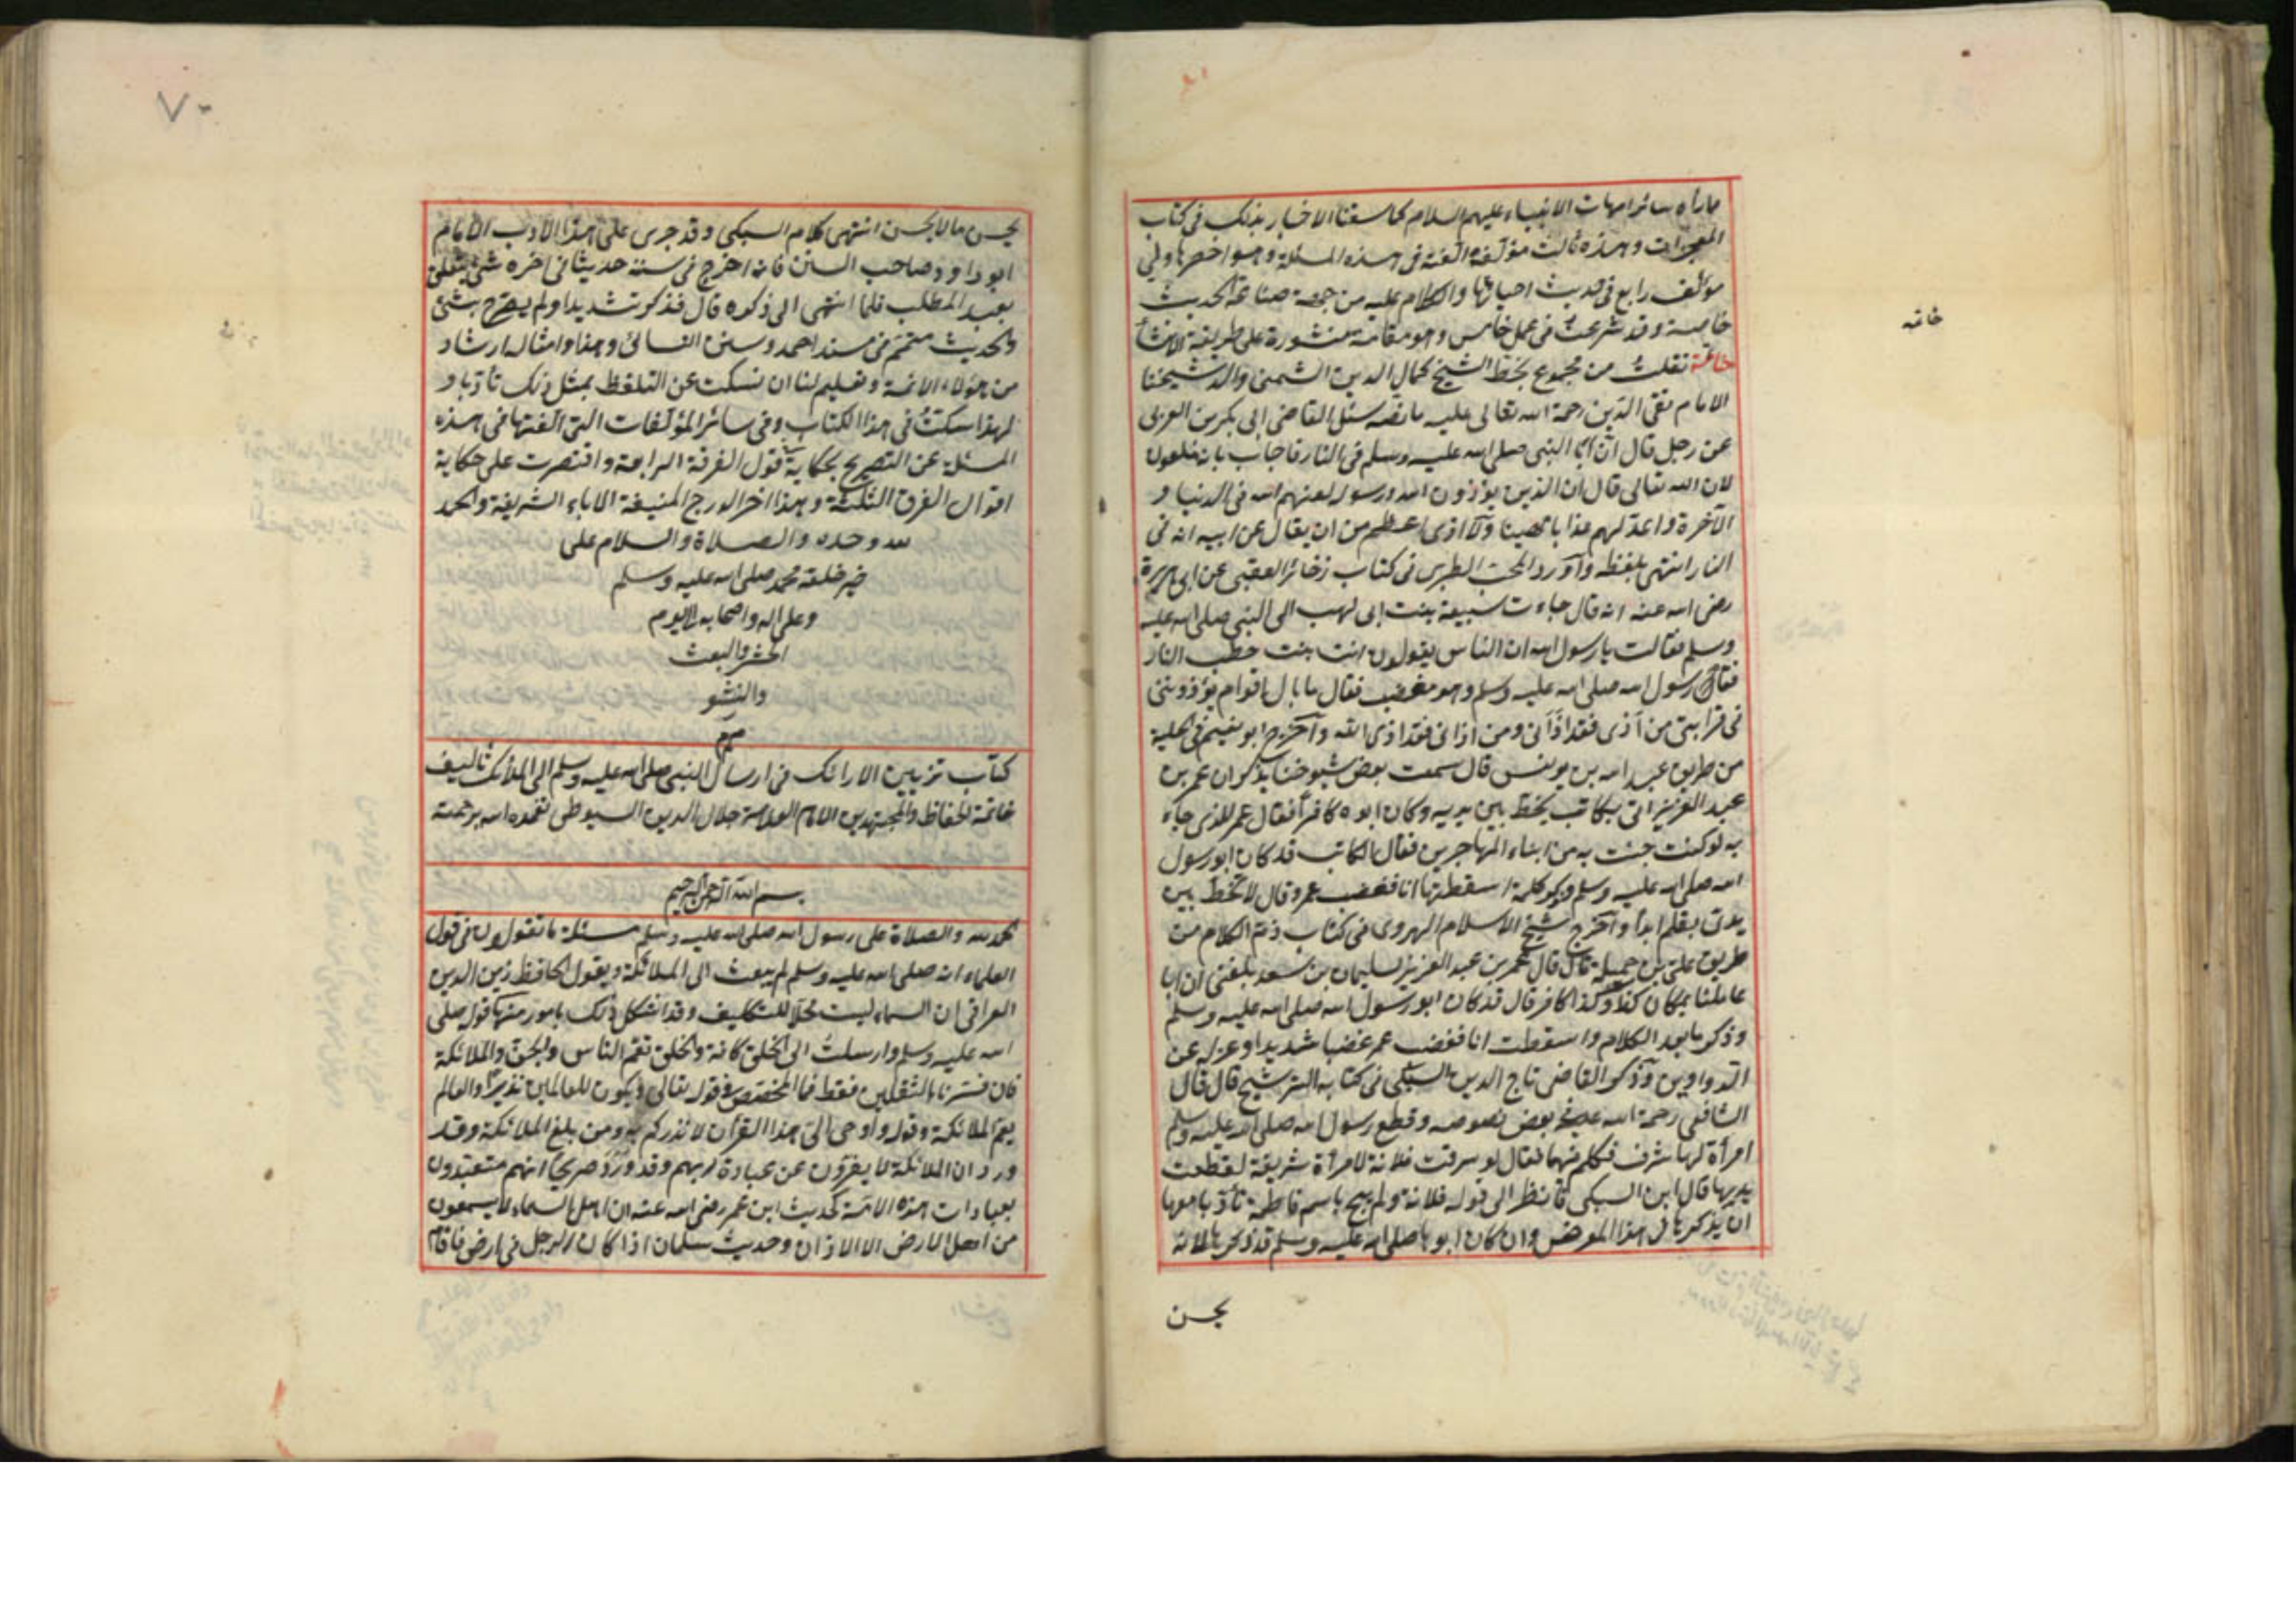 ما رأه سائر امهات الانبياء عليهم السلام كما سقنا الاخبار بذلك فى كتاب
المعجزات وهذه ثالث مؤلفة الفته فى هذه المسئلة وهو اخصرها ولى
مؤلف رابع فى حديث احيائها والكلام عليه من جهة صناعة الحديث
خاصة وقد شرعت فى عمل خامس وهو مقامة منثورة على طريقة الانشأ
خاتمة نقلت من مجموع بخط الشيخ كمال الدين الشمنى والد شيخنا
خاتمه
الامام تقى الدين رحمة الله تعالى عليه ما نصه سئل القاضى ابى بكر بن العربى
عن رجل قال ان ابا النبى صلى الله عليه وسلم فى النار فاجاب بانه ملعون
لان الله تعالى قال ان الذين يؤذون الله ورسوله لعنهم الله فى الدنيا و
الآخرة واعد لهم عذابا مهينا ولا اذى اعظم من ان يقال عن ابيه انه فى
النار انتهى بلفظه وأورد المحب الطبرى فى كتاب ذخائر العقبى عن ابى هريرة
رضى الله عنه انه قال جاءت سبيعة بنت ابى لهب الى النبى صلى الله عليه
وسلم فقالت يا رسول الله ان الناس يقولون انت بنت حطب النار
فقام رسول الله صلى الله عليه وسلم وهو مغضب فقال ما بال اقوام يؤذوننى
فى قرابتى من آذى فقد اذانى ومن اذانى فقد اذى الله وأخرج ابو نعيم فى الحلية
من طريق عبد الله بن يونس قال سمعت بعض شيوخنا يذكر ان عمر بن
عبد العزيز اتى بكاتب يخط بين يديه وكان ابوه كافرا فقال عمر للذى جاء
به لو كنت جئت به من ابناء المهاجرين فقال الكاتب قد كان ابو رسول
الله صلى الله عليه وسلم وذكر كلمة اسقطتها انا فغضب عمر وقال لا تخط بين
يدى بقلم ابدا وأخرج شيخ الاسلام الهروى فى كتاب ذم الكلام من
طريق على بن جميلة قال قال عمر بن عبد العزيز لسليمان بن سعد بلغنى ان ابا
عاملنا بمكان كذا وكذا كافر قال قد كان ابو رسول الله صلى الله عليه وسلم
وذكر ما بعد الكلام واسقطت انا فغضب عمر غضبا شديدا وعزله عن
الدواوين وذكر القاضى تاج الدين السبكى فى كتابه الترشيح قال قال
الشافعى رحمة الله عليه فى بعض نصوصه وقطع رسول الله صلى الله عليه وسلم
امرأة لها شرف فكلم فيها فقال لو سرقت فلانة لامرأة شريفة لقطعت
يديها قال ابن السبكى فانظر الى قوله فلانة ولم يبح باسم فاطمة تأدبا معها
ان يذكرها فى هذا المعرض وان كان ابوها صلى الله عليه وسلم قد ذكرها لانه
يحسن
٧٠
يحسن ما لا يحسن انتهى كلام السبكى وقد جرى على هذا الأدب الامام
ابو داود صاحب السنن فانه اخرج فى سننه حديثا فى اخره شئ يتعلق
بعبد المطلب فلما انتهى الى ذكره قال فذكر تشديدا ولم يصرح بشئ
والحديث متمم فى مسند احمد وسنن النسائى وهذا وامثاله ارشاد
من هؤلاء الائمة وتعليم لنا ان نسكت عن التلفظ بمثل ذلك تأدبا و
لهذا سكت فى هذا الكتاب وفى سائر المؤلفات التى الفتها فى هذه
المسئلة عن التصريح بحكاية قول الفرقة الرابعة واقتصرت على حكاية
اقوال الفرق الثلثة وهذا اخر الدرج المنيفة الاباء الشريفة والحمد
لله وحده والصلاة والسلام على
خير خلقه محمد صلى الله عليه وسلم
وعلى اله واصحابه الى يوم
الحشر والبعث
والنشو
كتاب تزيين الارائك فى ارسال النبى صلى الله عليه وسلم الى الملائك تأليف
خاتمة الحفاظ والمجتهدين الامام العلامة جلال الدين السيوطى تغمده الله برحمته
بسم الله الرحمن الرحيم
الحمد لله والصلاة على رسول الله صلى الله عليه وسلم مسئلة ما تقولون فى قول
العلماء انه صلى الله عليه وسلم لم يبعث الى الملائكة ويقول الحافظ زين الدين
العراقى ان السماء ليست محلا للتكليف وقد اشكل ذلك بامور منها قوله صلى
الله عليه وسلم وارسلت الى الخلق كافة والخلق تعم الناس والجن والملائكة
فان فسرناه بالثقلين فقط فما المخصص وقوله تعالى ليكون للعالمين نذيرا والعالم
يعم الملائكة وقوله واوحى الى هذا القرآن لانذركم به ومن بلغ الملائكة وقد
ورد ان الملائكة لا يفترون عن عبادة ربهم وقد ورد صريحا انهم متعبدون
بعبادات هذه الامة كحديث ابن عمر رضى الله عنه ان اهل السماء لا يسمعون
من اهل الارض الا الاذان وحديث سلمان اذا كان الرجل فى ارض فاقام